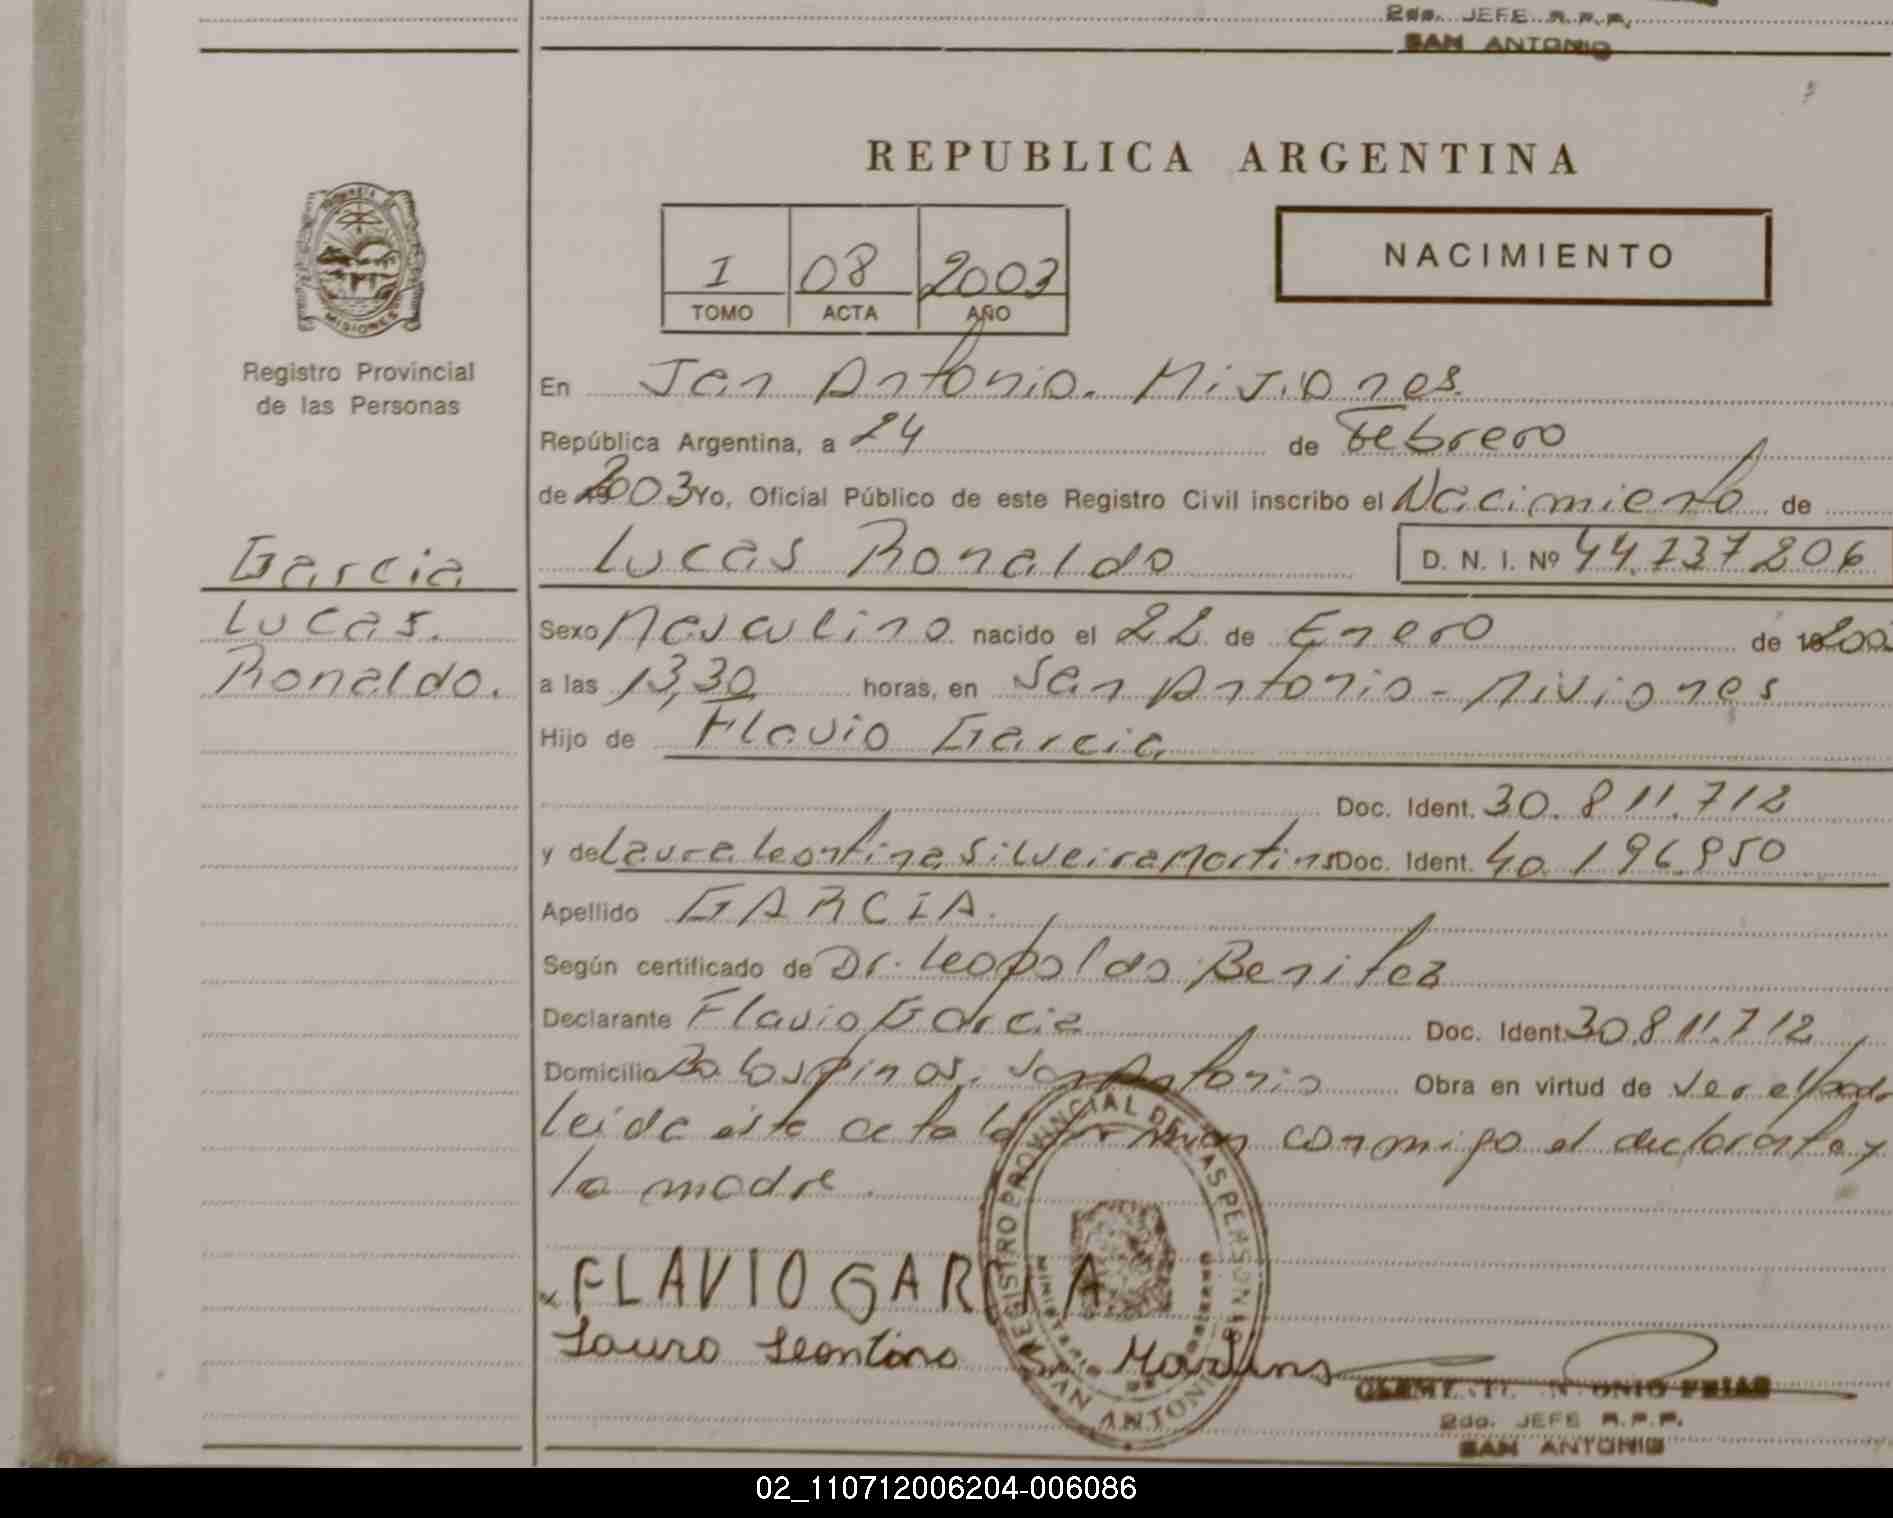 2do. JEFE R.P.P.
SAN ANTONIO
REPUBLICA ARGENTINA
I 08 2003
TOMO ACTA AÑO
NACIMIENTO
PROVINCIA DE
MISIONES
Registro Provincial
de las Personas
Garcia
Lucas.
Ronaldo.
En San Antonio. Misiones.
República Argentina, a 24 de Febrero
de 2003 Yo, Oficial Público de este Registro Civil inscribo el Nacimiento de
Lucas Ronaldo D. N. I. Nº 44.737206
Sexo Masculino nacido el 22 de Enero de 19200
a las 13,30 horas, en San Antonio - Misiones
Hijo de Flavio Garcia
Doc. Ident. 30.811.712
y de Laura Leontina Silveira Martins Doc. Ident. 40.196.950
Apellido GARCIA.
Según certificado de Dr. Leopoldo Benitez
Declarante Flavio Garcia Doc. Ident. 30.811.712
Domicilio Bo Los pinos. San Antonio Obra en virtud de ser el padre
leida esta acta la firman conmigo el declarante y
la madre.
x FLAVIO GARCIA
Laura Leontina Martins
REGISTRO PROVINCIAL DE LAS PERSONAS
SAN ANTONIO
CLEMENTE ANTONIO FRIAS
2do. JEFE R.P.P.
SAN ANTONIO
02_110712006204-006086